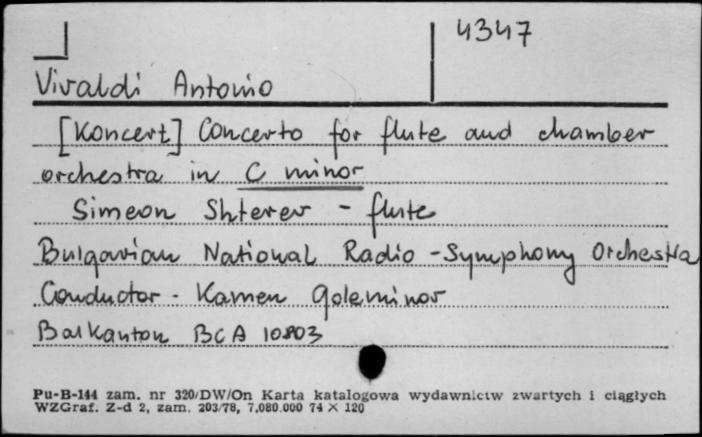 4347
Vivaldi Antonio
[Koncert] Concerto for flute and chamber
orchestra in C minor
Simeon Shterev - flute
Bulgarian National Radio - Symphony Orchestra
Conductor - Kamen Goleminov
Balkanton BCA 10803
Pu-B-144 zam. nr 320/DW/On Karta katalogowa wydawnictw zwartych i ciągłych
WZGraf. Z-d 2, zam. 203/78, 7.080.000 74 × 120